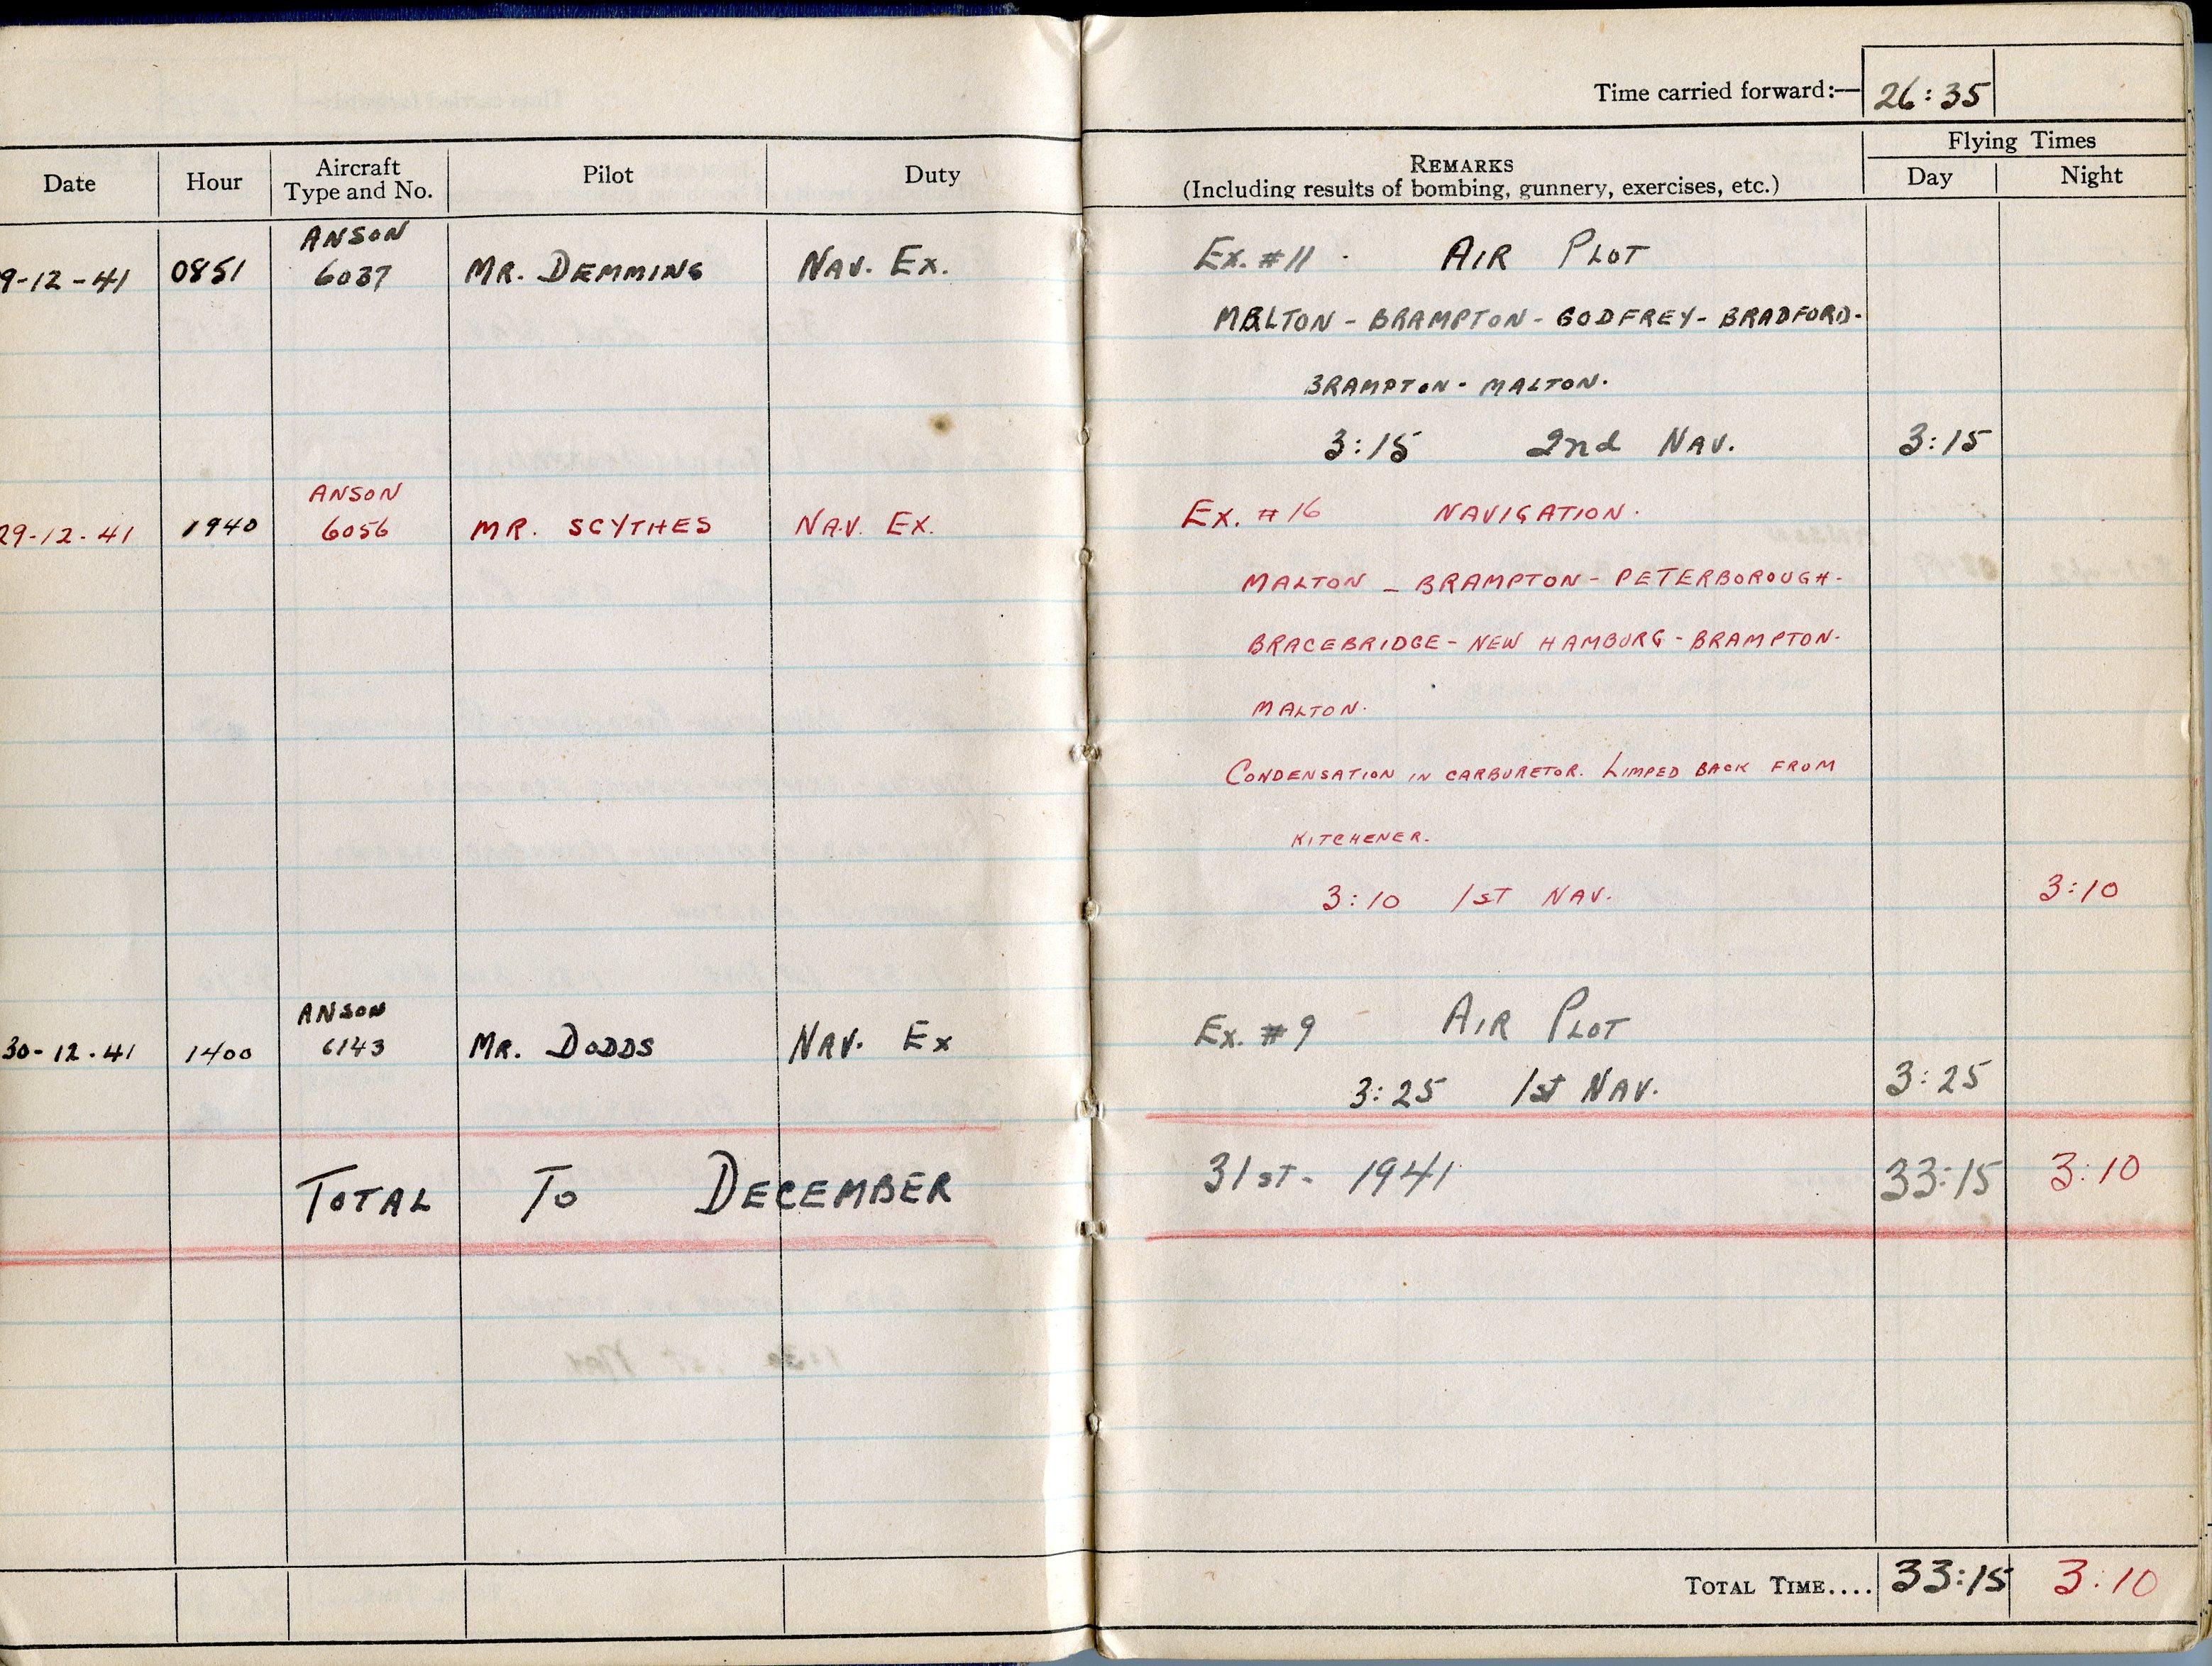 Time carried forward:— 26:35
Date Hour Aircraft Type and No. Pilot Duty REMARKS (Including results of bombing, gunnery, exercises, etc.) Flying Times Day Night
ANSON
9-12-41 0851 6037 MR. DEMMING NAV. EX. EX. #11 AIR PLOT
MALTON - BRAMPTON - GODFREY - BRADFORD-
BRAMPTON - MALTON.
3:15 2nd NAV. 3:15
ANSON
29-12-41 1940 6056 MR. SCYTHES NAV. EX. EX. #16 NAVIGATION.
MALTON - BRAMPTON - PETERBOROUGH-
BRACEBRIDGE - NEW HAMBURG - BRAMPTON-
MALTON.
CONDENSATION IN CARBURETOR. LIMPED BACK FROM
KITCHENER.
3:10 1ST NAV. 3:10
ANSON
30-12-41 1400 6143 MR. DODDS NAV. EX EX. #9 AIR PLOT
3:25 1st NAV. 3:25
TOTAL TO DECEMBER 31ST. 1941 33:15 3:10
TOTAL TIME.... 33:15 3:10